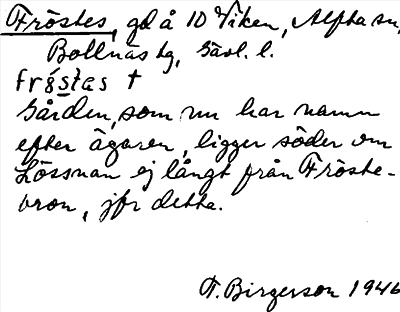 Fröstes, gd å 10 Viken, Alfta sn,
Bollnäs tg, Gävl. l.
frǿstas †
Gården, som nu har namn
efter ägaren, ligger söder om
Lössnan ej långt från Fröste-
vron, jfr detta.
T. Birgerson 1946